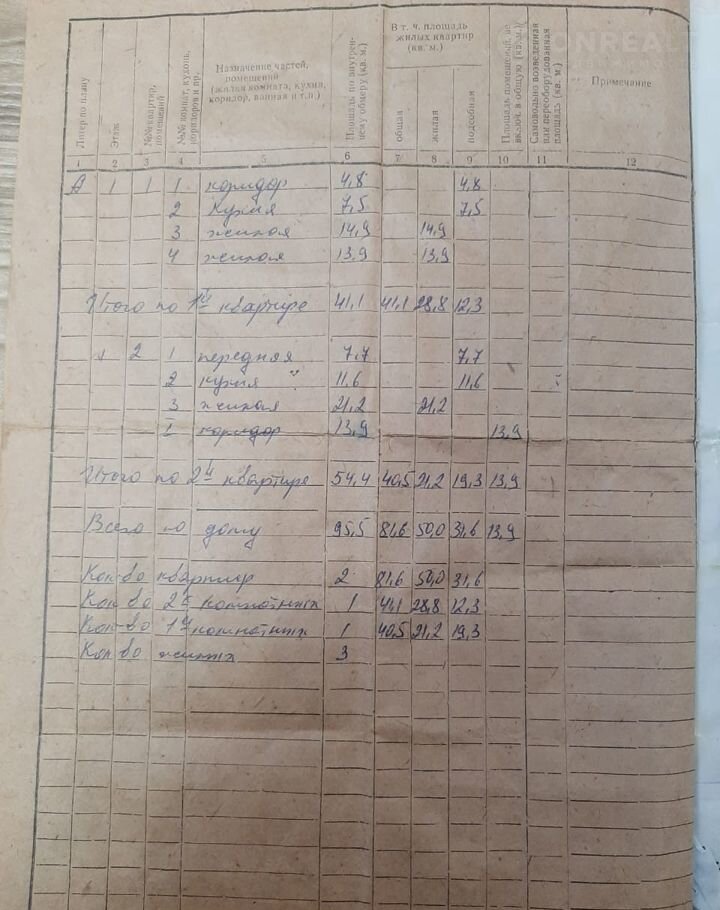 Литер по плану
Этаж
№№ квартир, помещений
№№ комнат, кухонь, коридоров и пр.
Назначение частей, помещений (жилая комната, кухня, коридор, ванная и т.п.)
Площадь по внутреннему обмеру (кв. м.)
В т. ч. площадь жилых квартир (кв. м.)
общая
жилая
подсобная
Площадь помещений, не включ. в общую (кв. м.)
Самовольно возведенная или переоборудованная площадь (кв. м.)
Примечание
1 2 3 4 5 6 7 8 9 10 11 12
А 1 1 1 коридор 4,8 4,8
2 кухня 7,5 7,5
3 жилая 14,9 14,9
4 жилая 13,9 13,9
Итого по 1й квартире 41,1 41,1 28,8 12,3
1 2 1 передняя 7,7 7,7
2 кухня 11,6 11,6
3 жилая 21,2 21,2
1 коридор 13,9 13,9
Итого по 2й квартире 54,4 40,5 21,2 19,3 13,9
Всего по дому 95,5 81,6 50,0 31,6 13,9
Кол-во квартир 2 81,6 50,0 31,6
Кол-во 2х комнатных 1 41,1 28,8 12,3
Кол-во 1й комнатных 1 40,5 21,2 19,3
Кол-во жилых 3